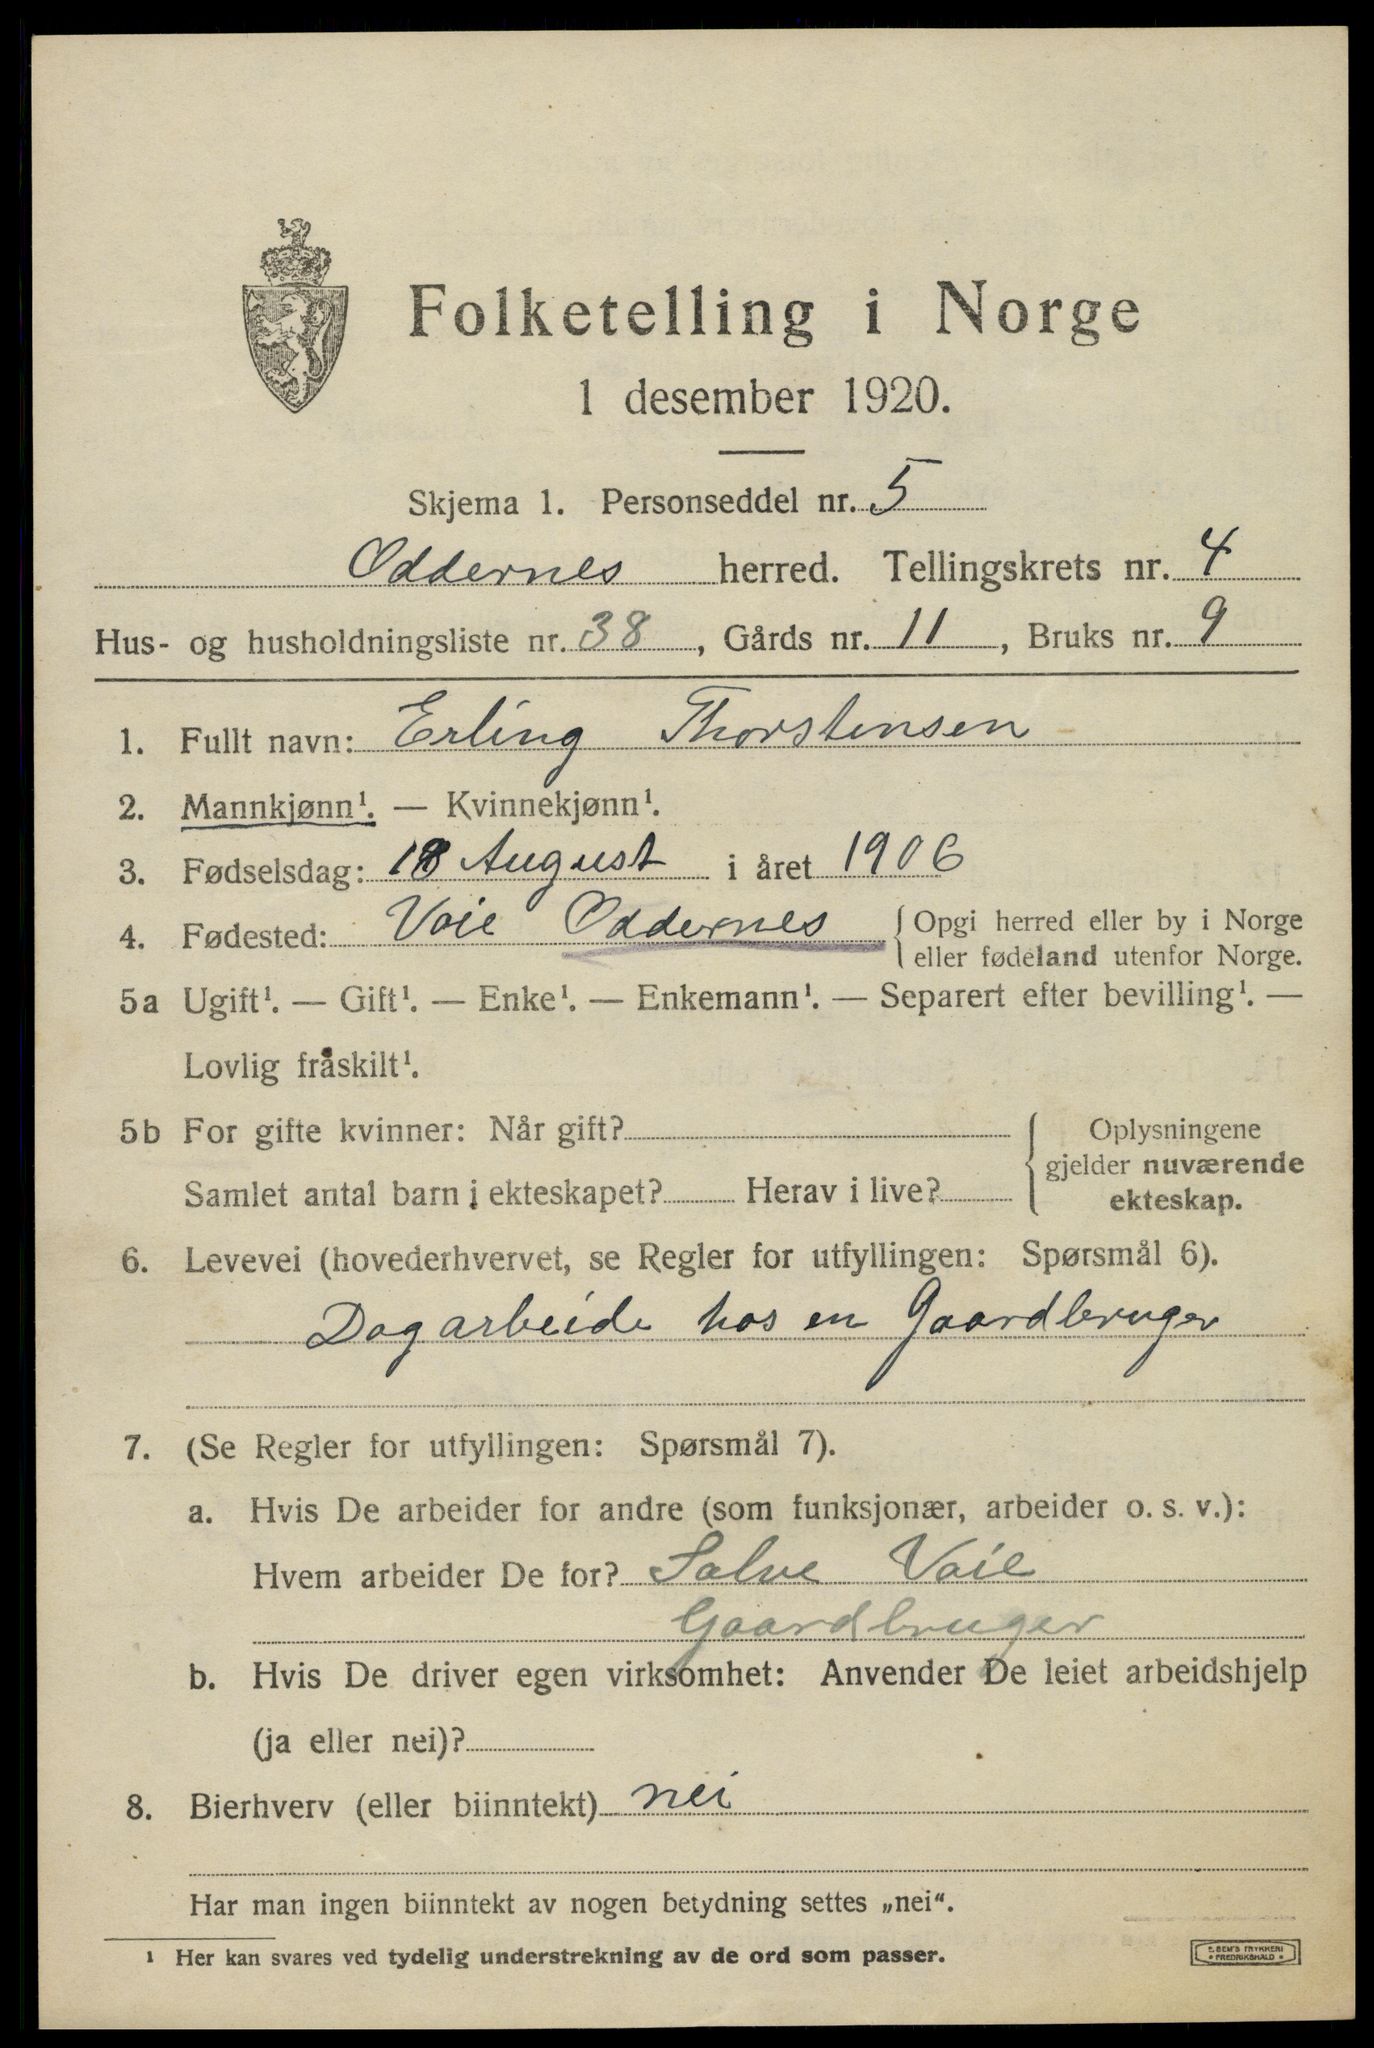 Folketelling i Norge
1 desember 1920.
Skjema 1. Personseddel nr. 5
Oddernes herred. Tellingskrets nr. 4
Hus- og husholdningsliste nr. 38, Gårds nr. 11, Bruks nr. 9
1. Fullt navn: Erling Thorstensen
2. Mannkjønn¹. — Kvinnekjønn¹.
3. Fødselsdag: 18 August i året 1906
4. Fødested: Voie Oddernes { Opgi herred eller by i Norge
eller fødeland utenfor Norge.
5a Ugift¹. — Gift¹. — Enke¹. — Enkemann¹. — Separert efter bevilling¹. —
Lovlig fråskilt¹.
5b For gifte kvinner: Når gift? { Oplysningene
gjelder nuværende
Samlet antal barn i ekteskapet? Herav i live? ekteskap.
6. Levevei (hovederhvervet, se Regler for utfyllingen: Spørsmål 6).
Dagarbeide hos en Gaardbruger
7. (Se Regler for utfyllingen: Spørsmål 7).
a. Hvis De arbeider for andre (som funksjonær, arbeider o. s. v.):
Hvem arbeider De for? Salve Voie
Gaardbruger
b. Hvis De driver egen virksomhet: Anvender De leiet arbeidshjelp
(ja eller nei)?
8. Bierhverv (eller biinntekt) nei
Har man ingen biinntekt av nogen betydning settes „nei“.
¹ Her kan svares ved tydelig understrekning av de ord som passer.
E. SEM'S TRYKKERI
FREDRIKSHALD